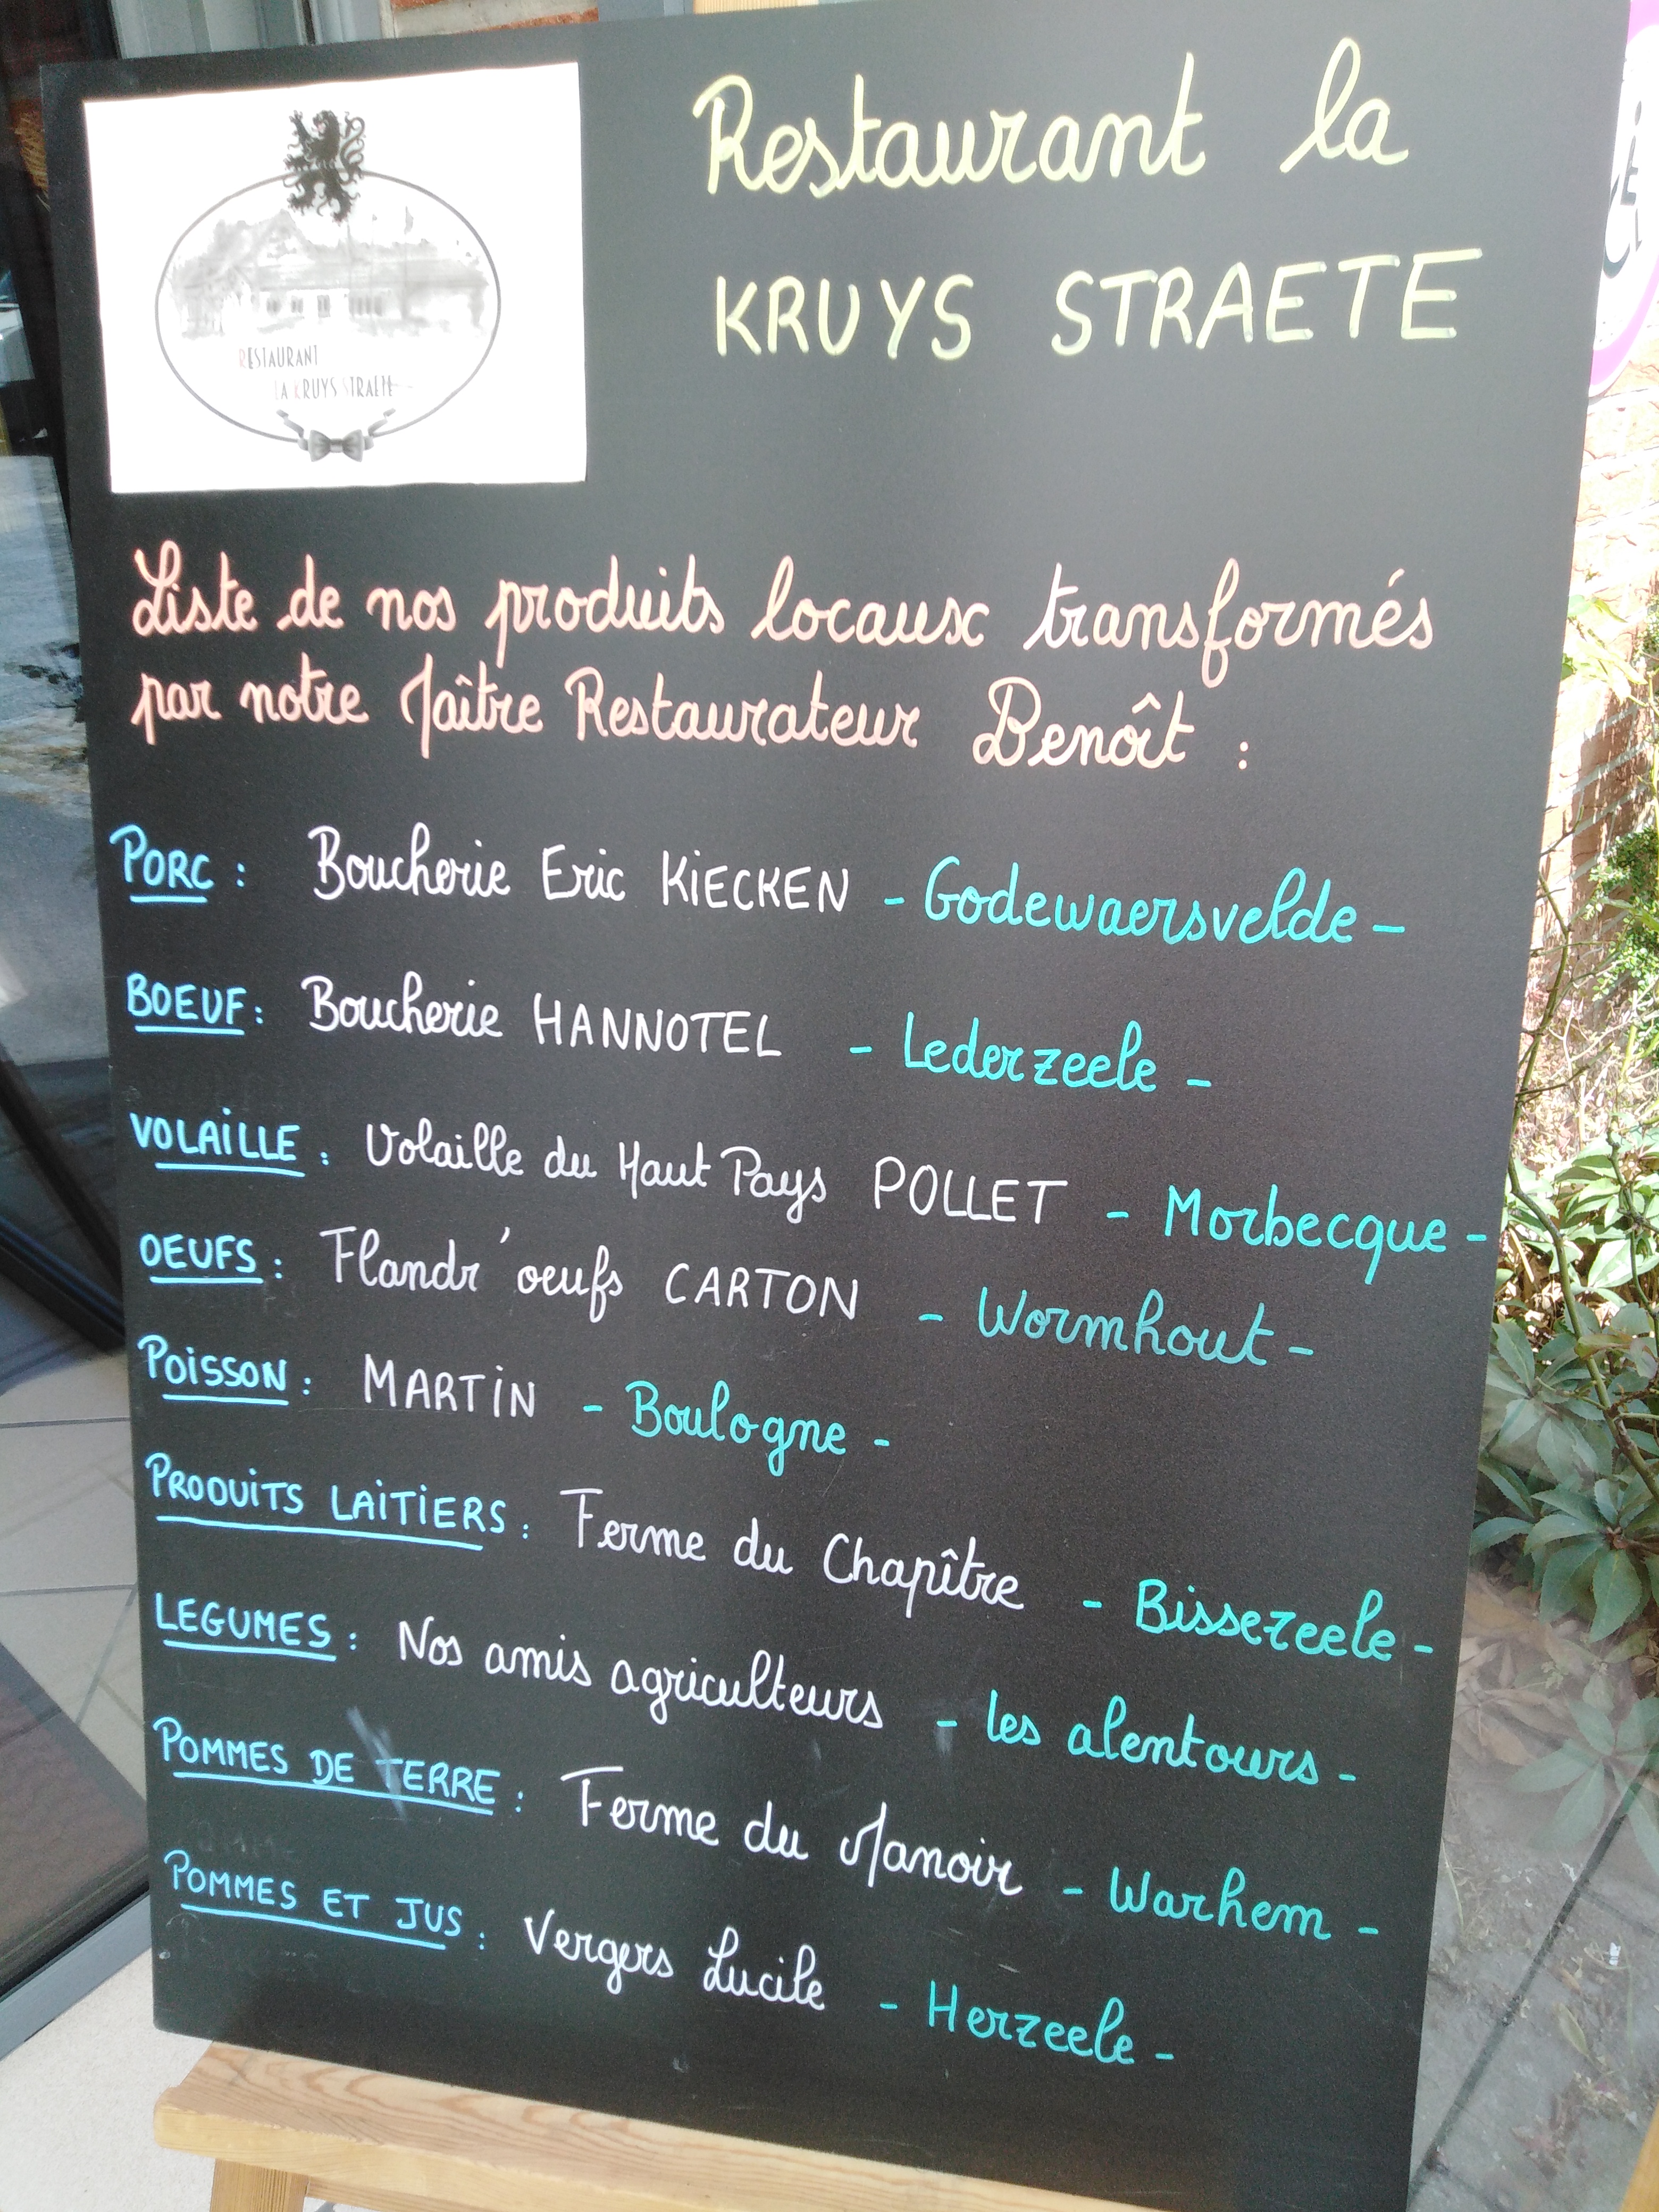 Restaurant la
KRUYS STRAETE
RESTAURANT
LA KRUYS STRAETE
Liste de nos produits locaux transformés
par notre Maître Restaurateur Benoît :
PORC : Boucherie Eric KIECKEN - Godewaersvelde -
BOEUF : Boucherie HANNOTEL - Lederzeele -
VOLAILLE : Volaille du Haut Pays POLLET - Morbecque -
OEUFS : Flandr'oeufs CARTON - Wormhout -
POISSON : MARTIN - Boulogne -
PRODUITS LAITIERS : Ferme du Chapître - Bissezeele -
LEGUMES : Nos amis agriculteurs - les alentours -
POMMES DE TERRE : Ferme du Manoir - Warhem -
POMMES ET JUS : Vergers Lucile - Herzeele -